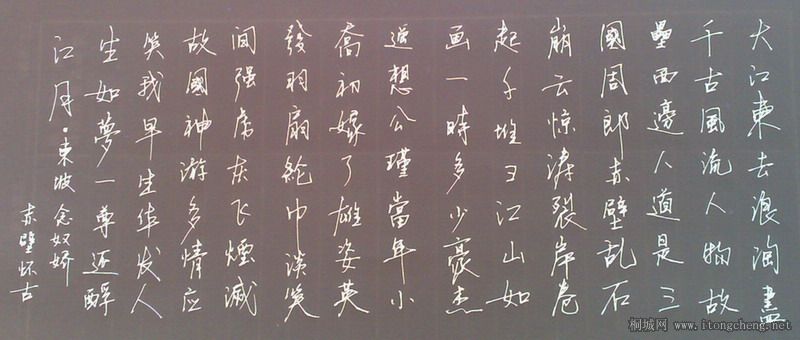 大江東去浪淘盡
千古風流人物故
壘西邊人道是三
國周郎赤壁乱石
崩云惊涛裂岸卷
起千堆彐江山如
画一時多少豪杰
遥想公瑾當年小
喬初嫁了雄姿英
發羽扇綸巾淡笑
间强虏灰飞煙滅
故國神游多情应
笑我早生华发人
生如夢一尊还酹
江月·東坡念奴娇
赤壁怀古
桐城网 www.itongcheng.net